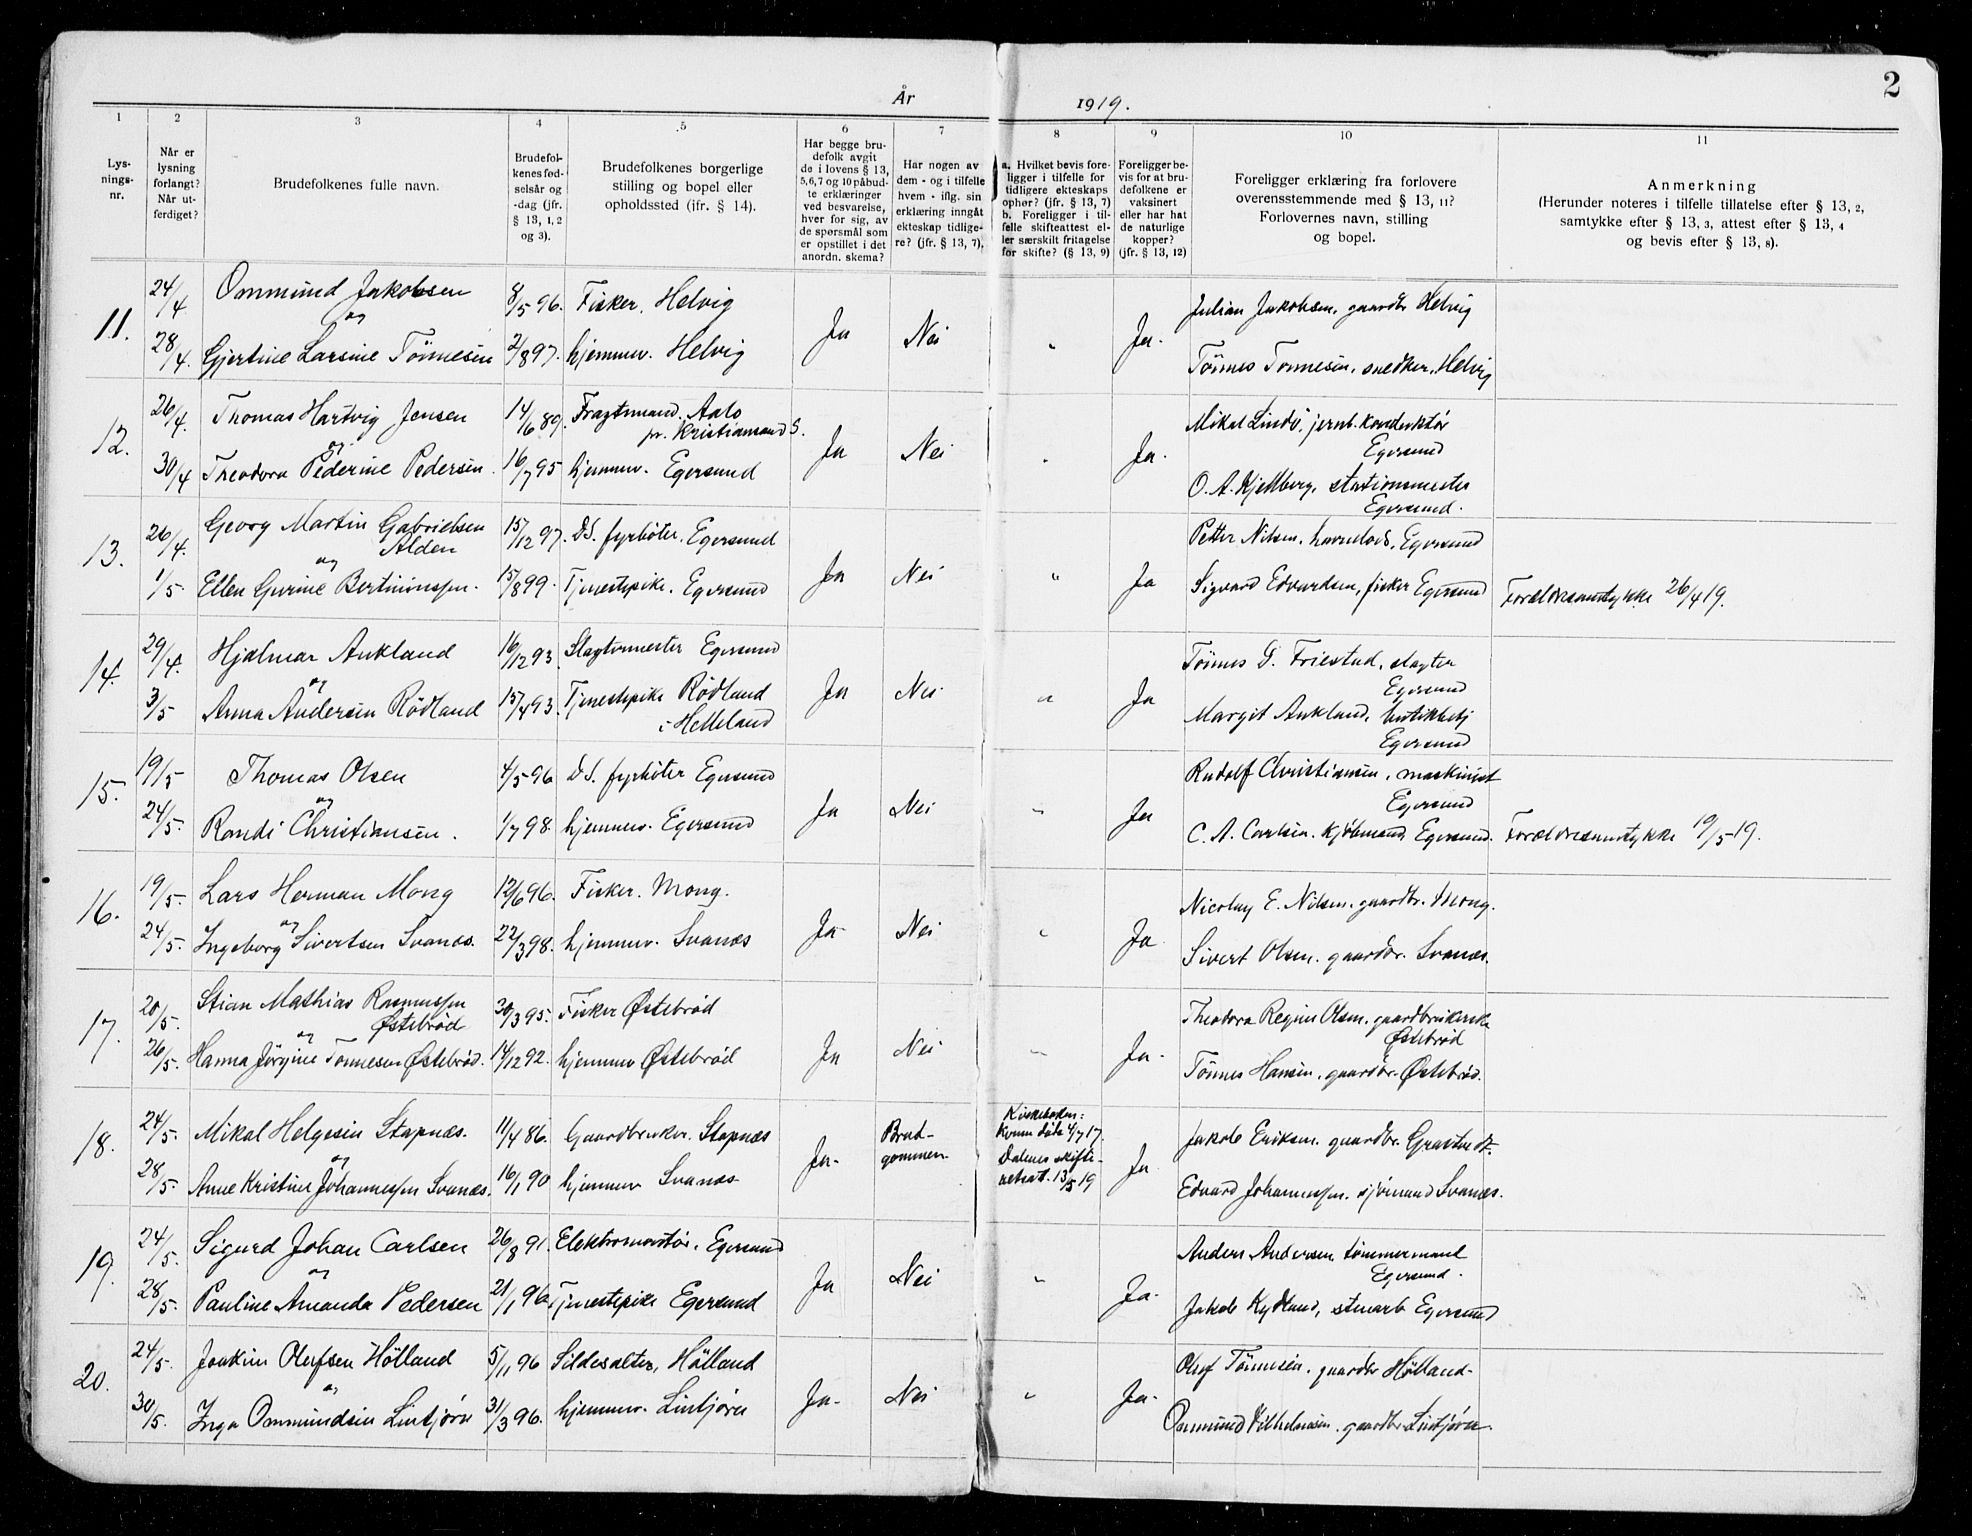 2
År 1919.
1 2 3 4 5 6 7 8 9 10 11
Lys-
nings-
nr.
Når er
lysning
forlangt?
Når ut-
ferdiget?
Brudefolkenes fulle navn.
Brudefol-
kenes fød-
selsår og
-dag (jfr.
§ 13, 1, 2
og 3).
Brudefolkenes borgerlige
stilling og bopel eller
opholdssted (jfr. § 14).
Har begge bru-
defolk avgit
de i lovens § 13,
5, 6, 7 og 10 påbud-
te erklæringer
ved besvarelse,
hver for sig, av
de spørsmål som
er opstillet i det
anordn. skema?
Har nogen av
dem - og i tilfelle
hvem - iflg. sin
erklæring inngåt
ekteskap tidlige-
re? (jfr. § 13, 7).
a. Hvilket bevis fore-
ligger i tilfelle for
tidligere ekteskaps
ophør? (jfr. § 13, 7)
b. Foreligger i til-
felle skifteattest el-
ler særskilt fritagelse
for skifte? (§ 13, 9)
Foreligger be-
vis for at bru-
defolkene er
vaksinert
eller har hat
de naturlige
kopper?
(jfr. § 13, 12)
Foreligger erklæring fra forlovere
overensstemmende med § 13, 11?
Forlovernes navn, stilling
og bopel.
Anmerkning
(Herunder noteres i tilfelle tillatelse efter § 13, 2,
samtykke efter § 13, 3, attest efter § 13, 4
og bevis efter § 13, 8).
11. 24/4 Ommund Jakobsen 8/5 96. Fisker. Helvig Ja Nei " Ja. Julian Jakobsen. gaardbr Helvig
og
28/4. Gjertine Larsine Tönnesen 2/8 97. hjemmev. Helvig Tönnes Tönnesen. snedker. Helvig
12. 26/4. Thomas Hartvig Jensen 14/6 89. Fragtemand. Aalo
pr. Kristiansand S. Ja Nei " Ja. Mikal Lindö, jernb. konduktör
Egersund
og
30/4 Theodora Pederine Pedersen. 16/7 95 hjemmev. Egersund O. A. Kjellberg, stationsmester
Egersund.
13. 26/4. Georg Martin Gabrielsen
Alden 15/12 97. D.S. fyrböter. Egersund Ja Nei " Ja Petter Nilsen. havnelods, Egersund
og
1/5 Ellen Gurine Bertinussen. 15/8 99. Tjenestepike. Egersund Sigvard Edvardsen, fisker Egersund Forældresamtykke 26/4 19.
14. 29/4. Hjalmar Aukland 16/12 93 Slagtermester Egersund Ja Nei " Ja Tönnes G. Friestad. slagter
Egersund
og
3/5 Anna Andersen Rödland 15/4 93. Tjenestepike Rödland
i Helleland Margit Aukland. butikbetj
Egersund
15. 19/5 Thomas Olsen 4/5 96 D.S. fyrböter Egersund Ja Nei " Ja Rudolf Christiansen. maskinist
Egersund
og
24/5. Randi Christiansen. 1/7 98. hjemmev. Egersund C. A. Carlsen. kjøbmand Egersund. Forældresamtykke 19/5-19.
16. 19/5. Lars Herman Mong 12/6 96. Fisker. Mong. Ja Nei " Ja Nicolay E. Nilsen. gaardbr. Mong.
og
24/5. Ingeborg Sivertsen Svanæs. 22/3 98. hjemmev. Svanæs Sivert Olsen. gaardbr. Svanæs.
17. 20/5. Stian Mathias Rasmussen
Østebrød 30/3 95. Fisker Østebrød Ja Nei " Ja. Theodora Regine Olsen. gaardbrukerske
Østebrød
og
26/5. Hanna Jörgine Tönnesen Østebrød. 14/12 92. hjemmev Østebrød Tönnes Hansen. gaardbr. Østebrød.
18. 24/5. Mikal Helgesen Stapnæs. 11/4 86. Gaardbruker. Stapnæs Ja. Brud-
gommen. Kirkeboken:
Konen døde 4/7 17.
Dalenes skifte-
retsatt. 13/5 19 Ja Jakob Eriksen. gaardbr.
og
28/5. Anne Kristine Johannessen Svanæs. 16/1 90 hjemmev Svanæs Edvard Johannessen. sjömand Svanæs.
19. 24/5. Sigurd Johan Carlsen 26/8 91. Elektromontör. Egersund Ja Nei " Ja. Anders Andersen tömmermand
Egersund.
og
28/5. Pauline Amanda Pedersen 21/1 96. Tjenestepike Egersund Jakob Kydland, stuarb Egersund
20. 24/5. Joakim Olufsen Hölland 5/11 96 Sildesalter, Hölland Ja. Nei " Ja. Oluf Tönnesen. gaardbr Hölland.
og
30/5. Inga Ommundsen Lintjörn 31/3 96. hjemmev. Lintjörn Ommund Vilhelmsen. gaardbr Lintjörn.